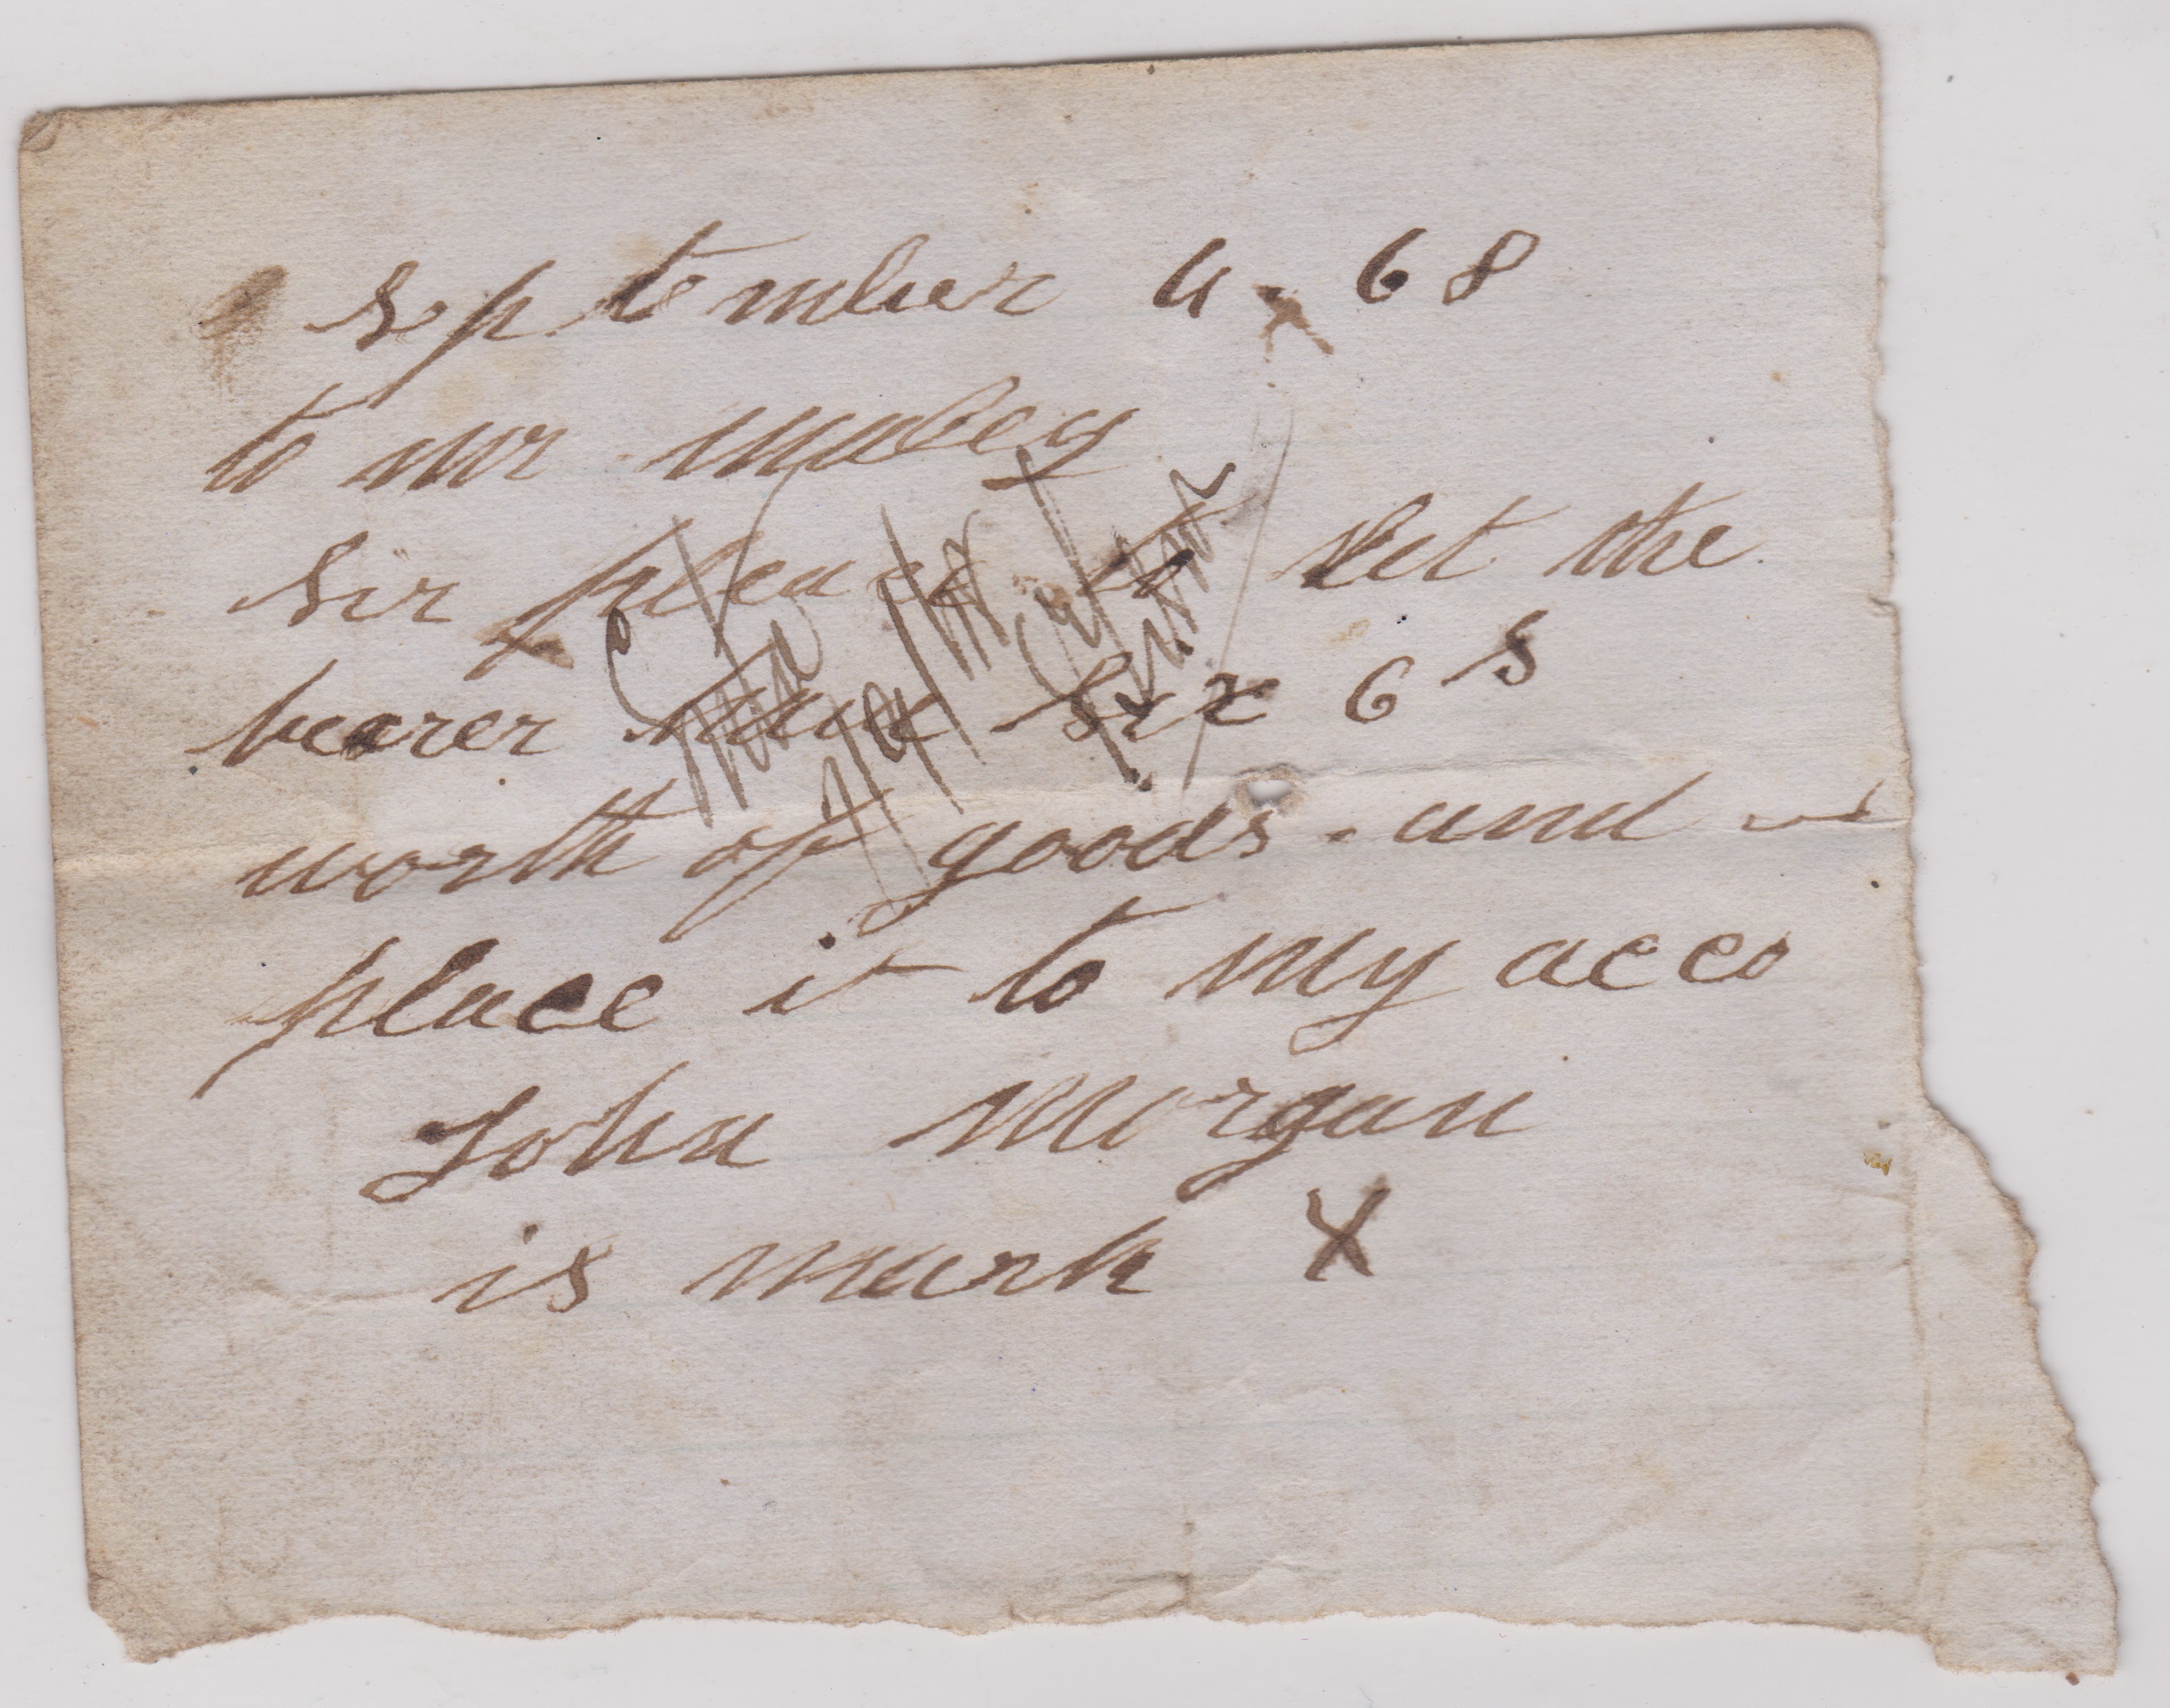 september 4. 68
to mr mabey
Sir please to let the
bearer have Six 6 s
worth of goods. and
place it to my acco
John Morgan
is mark X